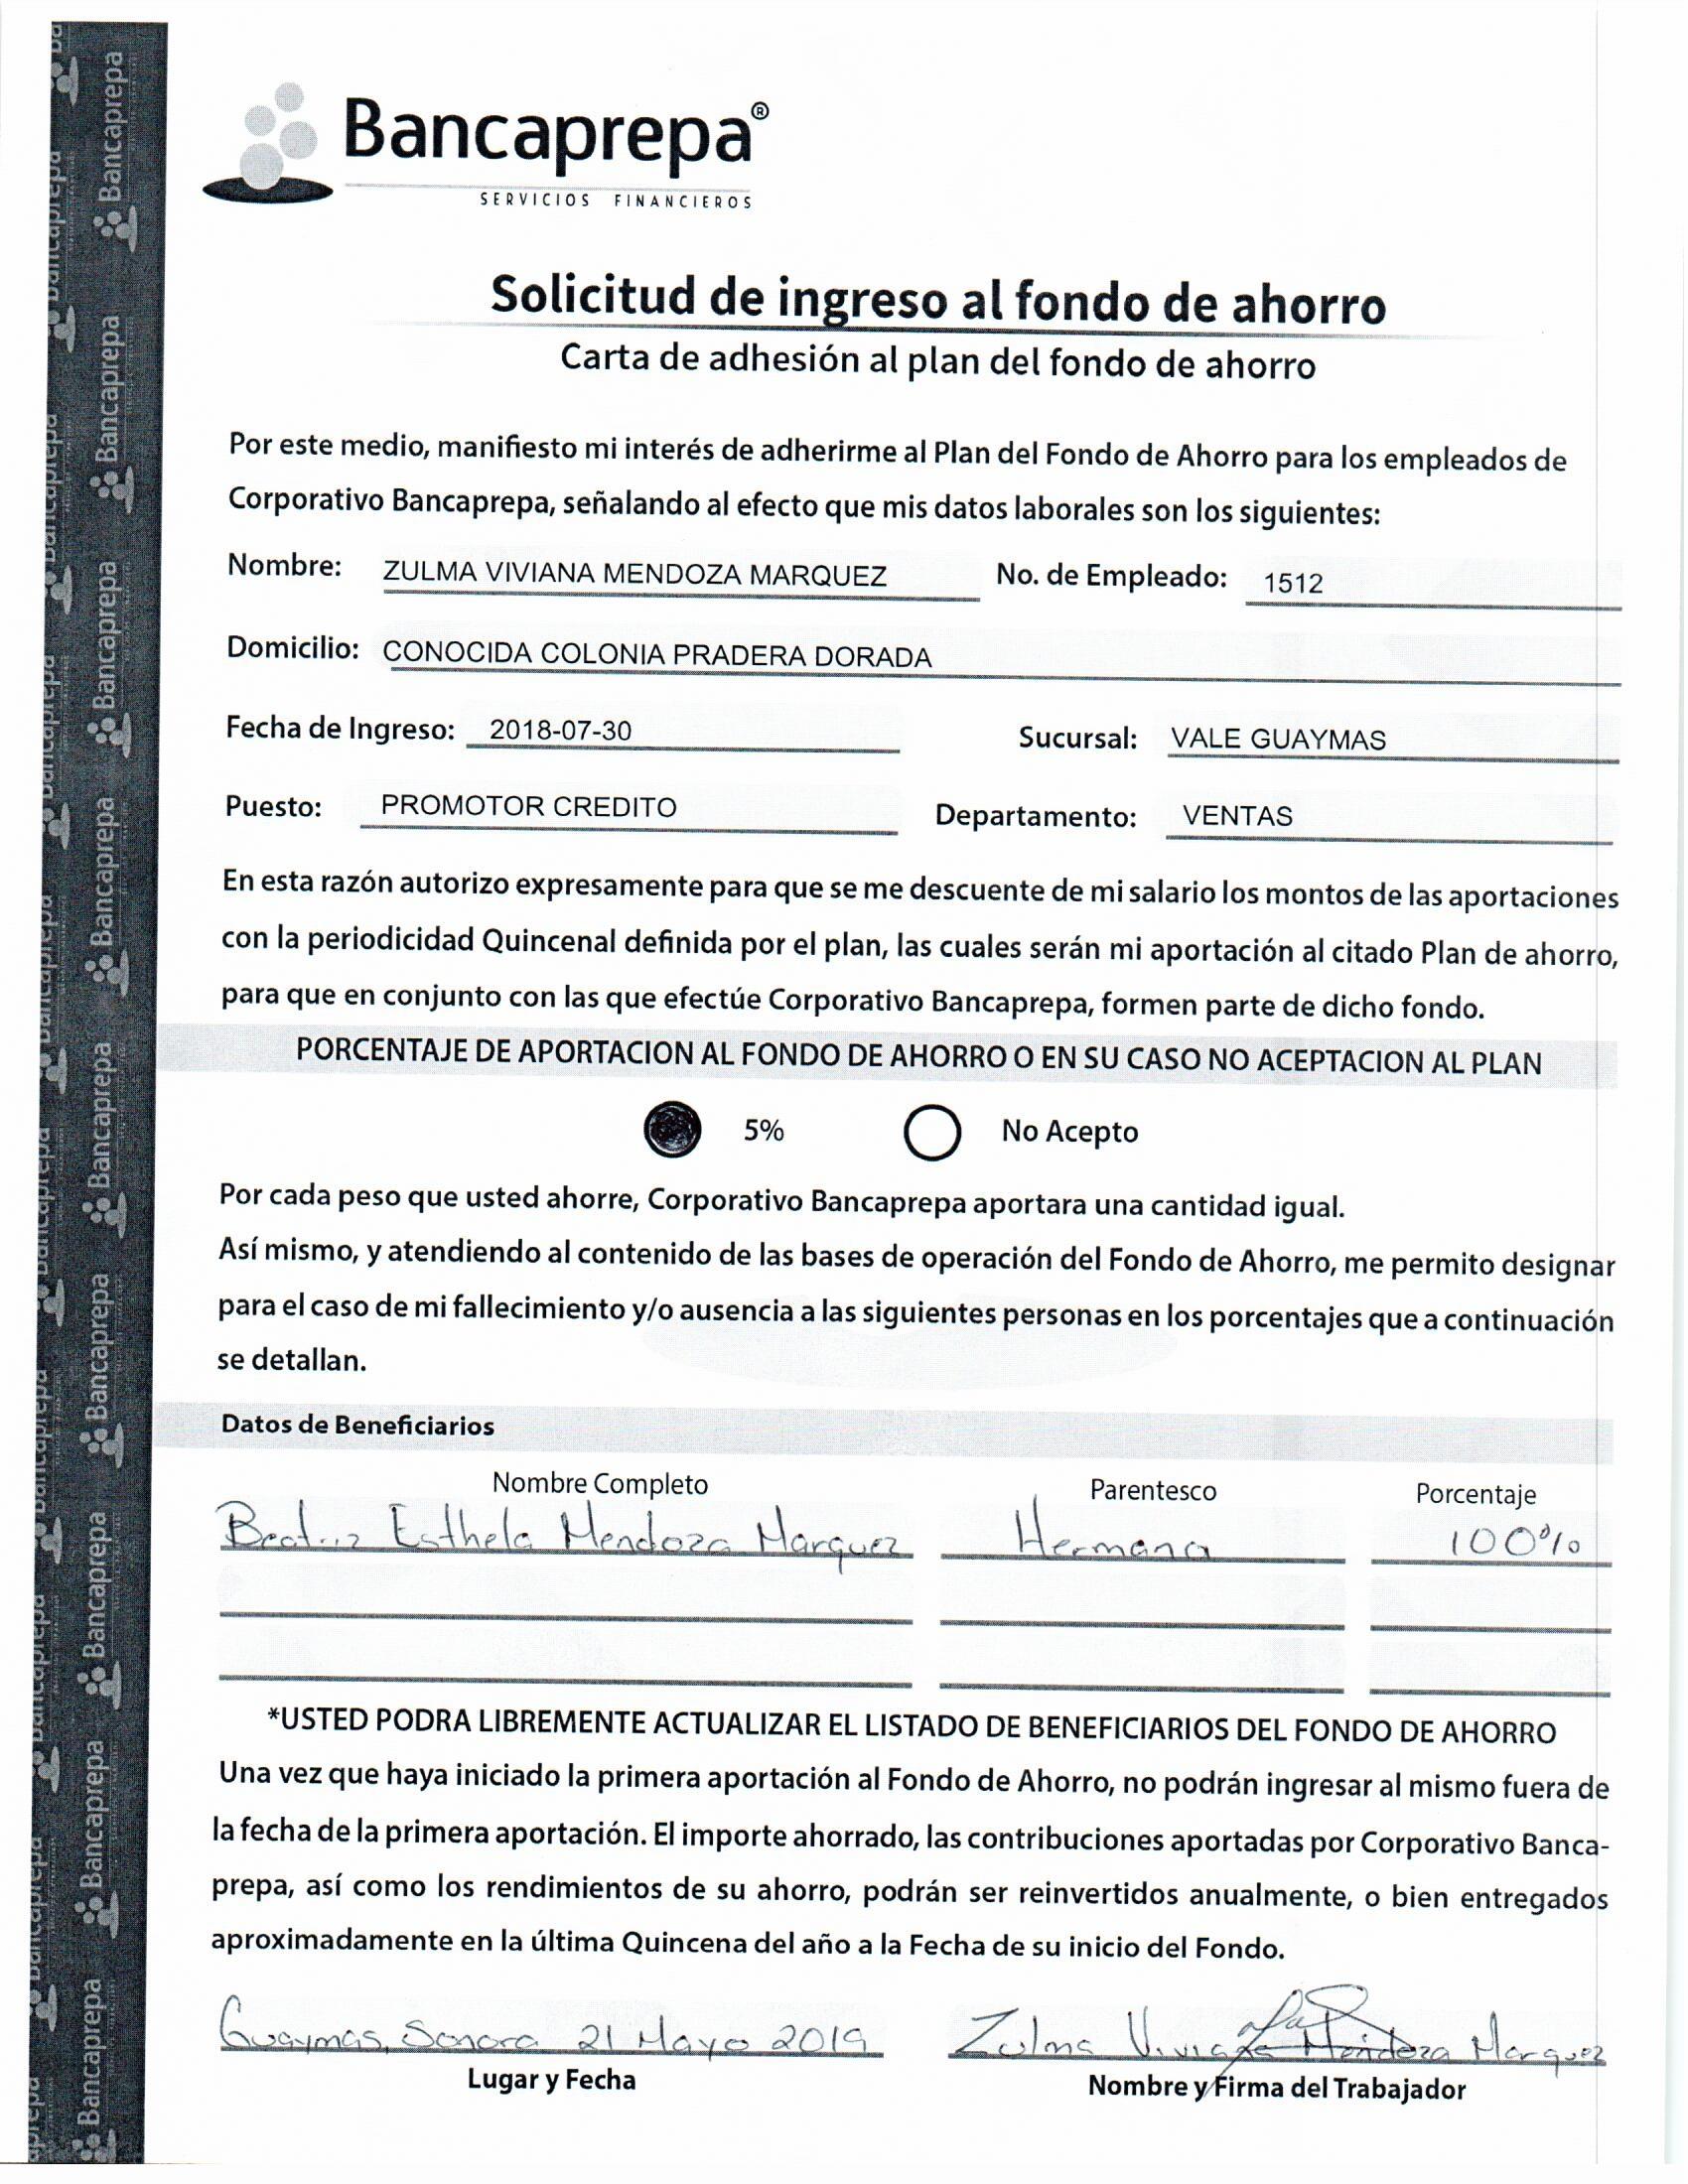 Bancaprepa®
SERVICIOS FINANCIEROS
Solicitud de ingreso al fondo de ahorro
Carta de adhesión al plan del fondo de ahorro
Por este medio, manifiesto mi interés de adherirme al Plan del Fondo de Ahorro para los empleados de
Corporativo Bancaprepa, señalando al efecto que mis datos laborales son los siguientes:
Nombre: ZULMA VIVIANA MENDOZA MARQUEZ No. de Empleado: 1512
Domicilio: CONOCIDA COLONIA PRADERA DORADA
Fecha de Ingreso: 2018-07-30 Sucursal: VALE GUAYMAS
Puesto: PROMOTOR CREDITO Departamento: VENTAS
En esta razón autorizo expresamente para que se me descuente de mi salario los montos de las aportaciones
con la periodicidad Quincenal definida por el plan, las cuales serán mi aportación al citado Plan de ahorro,
para que en conjunto con las que efectúe Corporativo Bancaprepa, formen parte de dicho fondo.
PORCENTAJE DE APORTACION AL FONDO DE AHORRO O EN SU CASO NO ACEPTACION AL PLAN
5% No Acepto
Por cada peso que usted ahorre, Corporativo Bancaprepa aportara una cantidad igual.
Así mismo, y atendiendo al contenido de las bases de operación del Fondo de Ahorro, me permito designar
para el caso de mi fallecimiento y/o ausencia a las siguientes personas en los porcentajes que a continuación
se detallan.
Datos de Beneficiarios
Nombre Completo Parentesco Porcentaje
Beatriz Esthela Mendoza Marquez Hermana 100%
*USTED PODRA LIBREMENTE ACTUALIZAR EL LISTADO DE BENEFICIARIOS DEL FONDO DE AHORRO
Una vez que haya iniciado la primera aportación al Fondo de Ahorro, no podrán ingresar al mismo fuera de
la fecha de la primera aportación. El importe ahorrado, las contribuciones aportadas por Corporativo Banca-
prepa, así como los rendimientos de su ahorro, podrán ser reinvertidos anualmente, o bien entregados
aproximadamente en la última Quincena del año a la Fecha de su inicio del Fondo.
Guaymas, Sonora 21 Mayo 2019 Zulma Viviana Mendoza Marquez
Lugar y Fecha Nombre y Firma del Trabajador